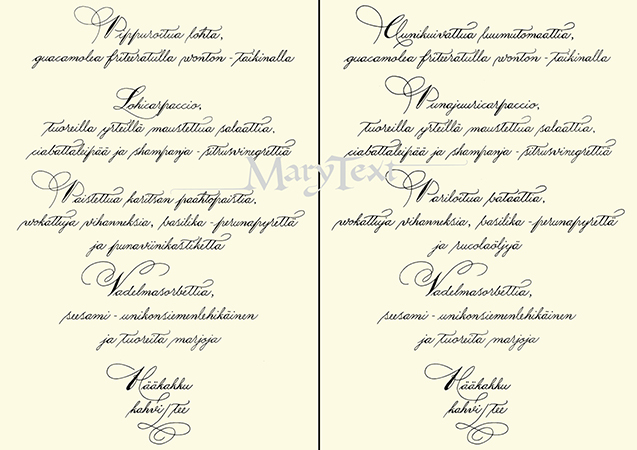 Pippuroitua lohta,
guacamolea friteeratulla wonton - taikinalla
Lohicarpaccio,
tuoreilla yrteillä maustettua salaattia,
ciabattaleipää ja shampanja - sitrusvinegrettiä
Paistettua karitsan paahtopaistia,
wokattuja vihanneksia, basilika - perunapyrettä
ja punaviinikastiketta
Vadelmasorbettia,
seesami - unikonsiemenlehikäinen
ja tuoreita marjoja
Hääkakku
kahvi / tee
Uunikuivattua luumutomaattia,
guacamolea friteeratulla wonton - taikinalla
Punajuuricarpaccio,
tuoreilla yrteillä maustettua salaattia,
ciabattaleipää ja shampanja - sitrusvinegrettiä
Pariloitua bataattia,
wokattuja vihanneksia, basilika - perunapyrettä
ja rucolaöljyä
Vadelmasorbettia,
seesami - unikonsiemenlehikäinen
ja tuoreita marjoja
Hääkakku
kahvi / tee
MaryText